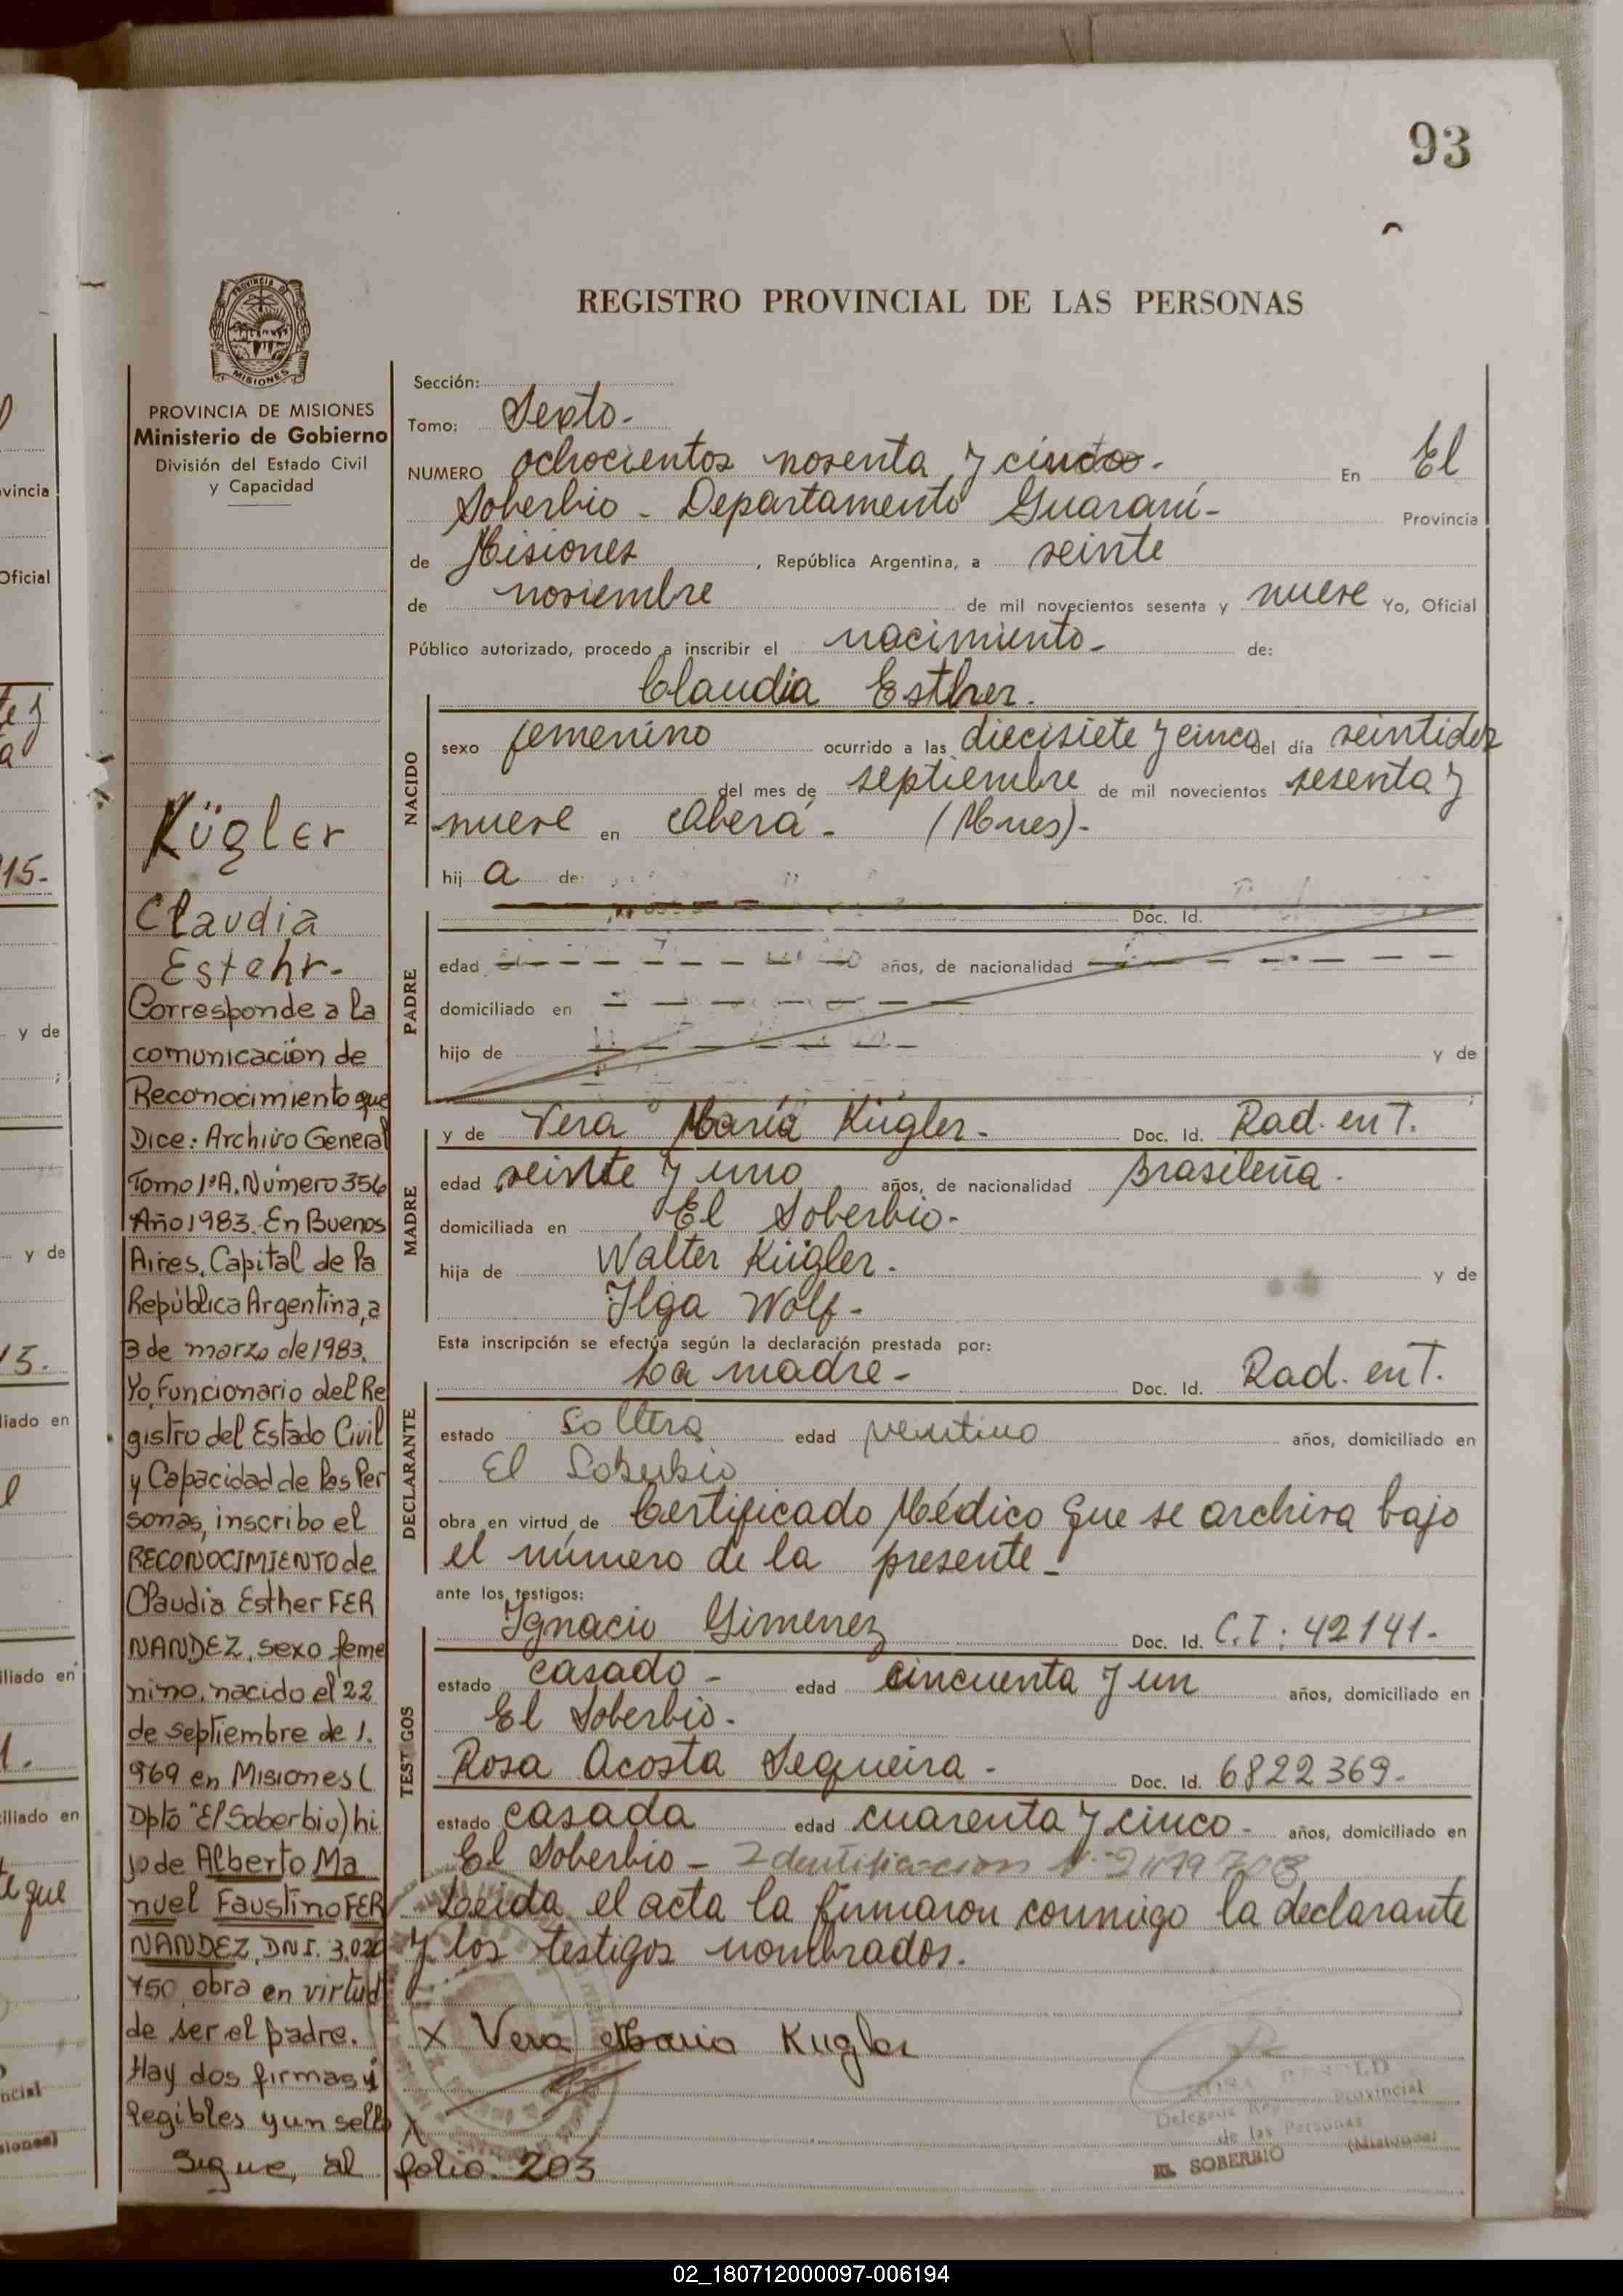 93
REGISTRO PROVINCIAL DE LAS PERSONAS
PROVINCIA DE MISIONES
Ministerio de Gobierno
División del Estado Civil
y Capacidad
Kügler
Claudia
Estehr-
Corresponde a la
comunicación de
Reconocimiento que
Dice: Archivo General
Tomo 1ºA. Número 356
Año 1983. En Buenos
Aires, Capital de la
República Argentina, a
3 de marzo de 1983.
Yo, Funcionario del Re
gistro del Estado Civil
y Capacidad de las Per
sonas, inscribo el
RECONOCIMIENTO de
Claudia Esther FER
NANDEZ, sexo feme
nino, nacido el 22
de septiembre de 1.
969 en Misiones (
Dpto "El Soberbio) hi
jo de Alberto Ma
nuel Faustino FER
NANDEZ, DNI. 3.020
750, obra en virtud
de ser el padre.
Hay dos firmas i
legibles y un sello
Sigue, al folio. 203
Sección:
Tomo: Sexto-
NUMERO ochocientos noventa y cinco-. En El
Soberbio - Departamento Guaraní- Provincia
de Misiones, República Argentina, a veinte
de noviembre de mil novecientos sesenta y nueve Yo, Oficial
Público autorizado, procedo a inscribir el nacimiento- de:
Claudia Esther.
NACIDO
sexo femenino ocurrido a las diecisiete y cinco del día veintidos
del mes de septiembre de mil novecientos sesenta y
nueve en Oberá - (Mnes)-
hij a de:
PADRE
Doc. Id.
edad años, de nacionalidad
domiciliado en
hijo de y de
MADRE
y de Vera María Kügler- Doc. Id. Rad. en T.
edad veinte y uno años, de nacionalidad brasileña.
domiciliada en El Soberbio-
hija de Walter Kügler- y de
Ilga Wolf-
Esta inscripción se efectúa según la declaración prestada por:
DECLARANTE
La madre- Doc. Id. Rad. en T.
estado Soltera edad veintiuno años, domiciliado en
El Soberbio
obra en virtud de Certificado Médico que se archiva bajo
el número de la presente-
ante los testigos:
TESTIGOS
Ignacio Gimenez Doc. Id. C.I: 42141-
estado casado- edad cincuenta y un años, domiciliado en
El Soberbio-
Rosa Acosta Sequeira- Doc. Id. 6822369-
estado casada edad cuarenta y cinco- años, domiciliado en
El Soberbio-
Leida el acta la firmaron conmigo la declarante
y los testigos nombrados.
X Vera Maria Kugler
X
Provincial
de las Personas
(Misiones)
EL SOBERBIO
02_180712000097-006194